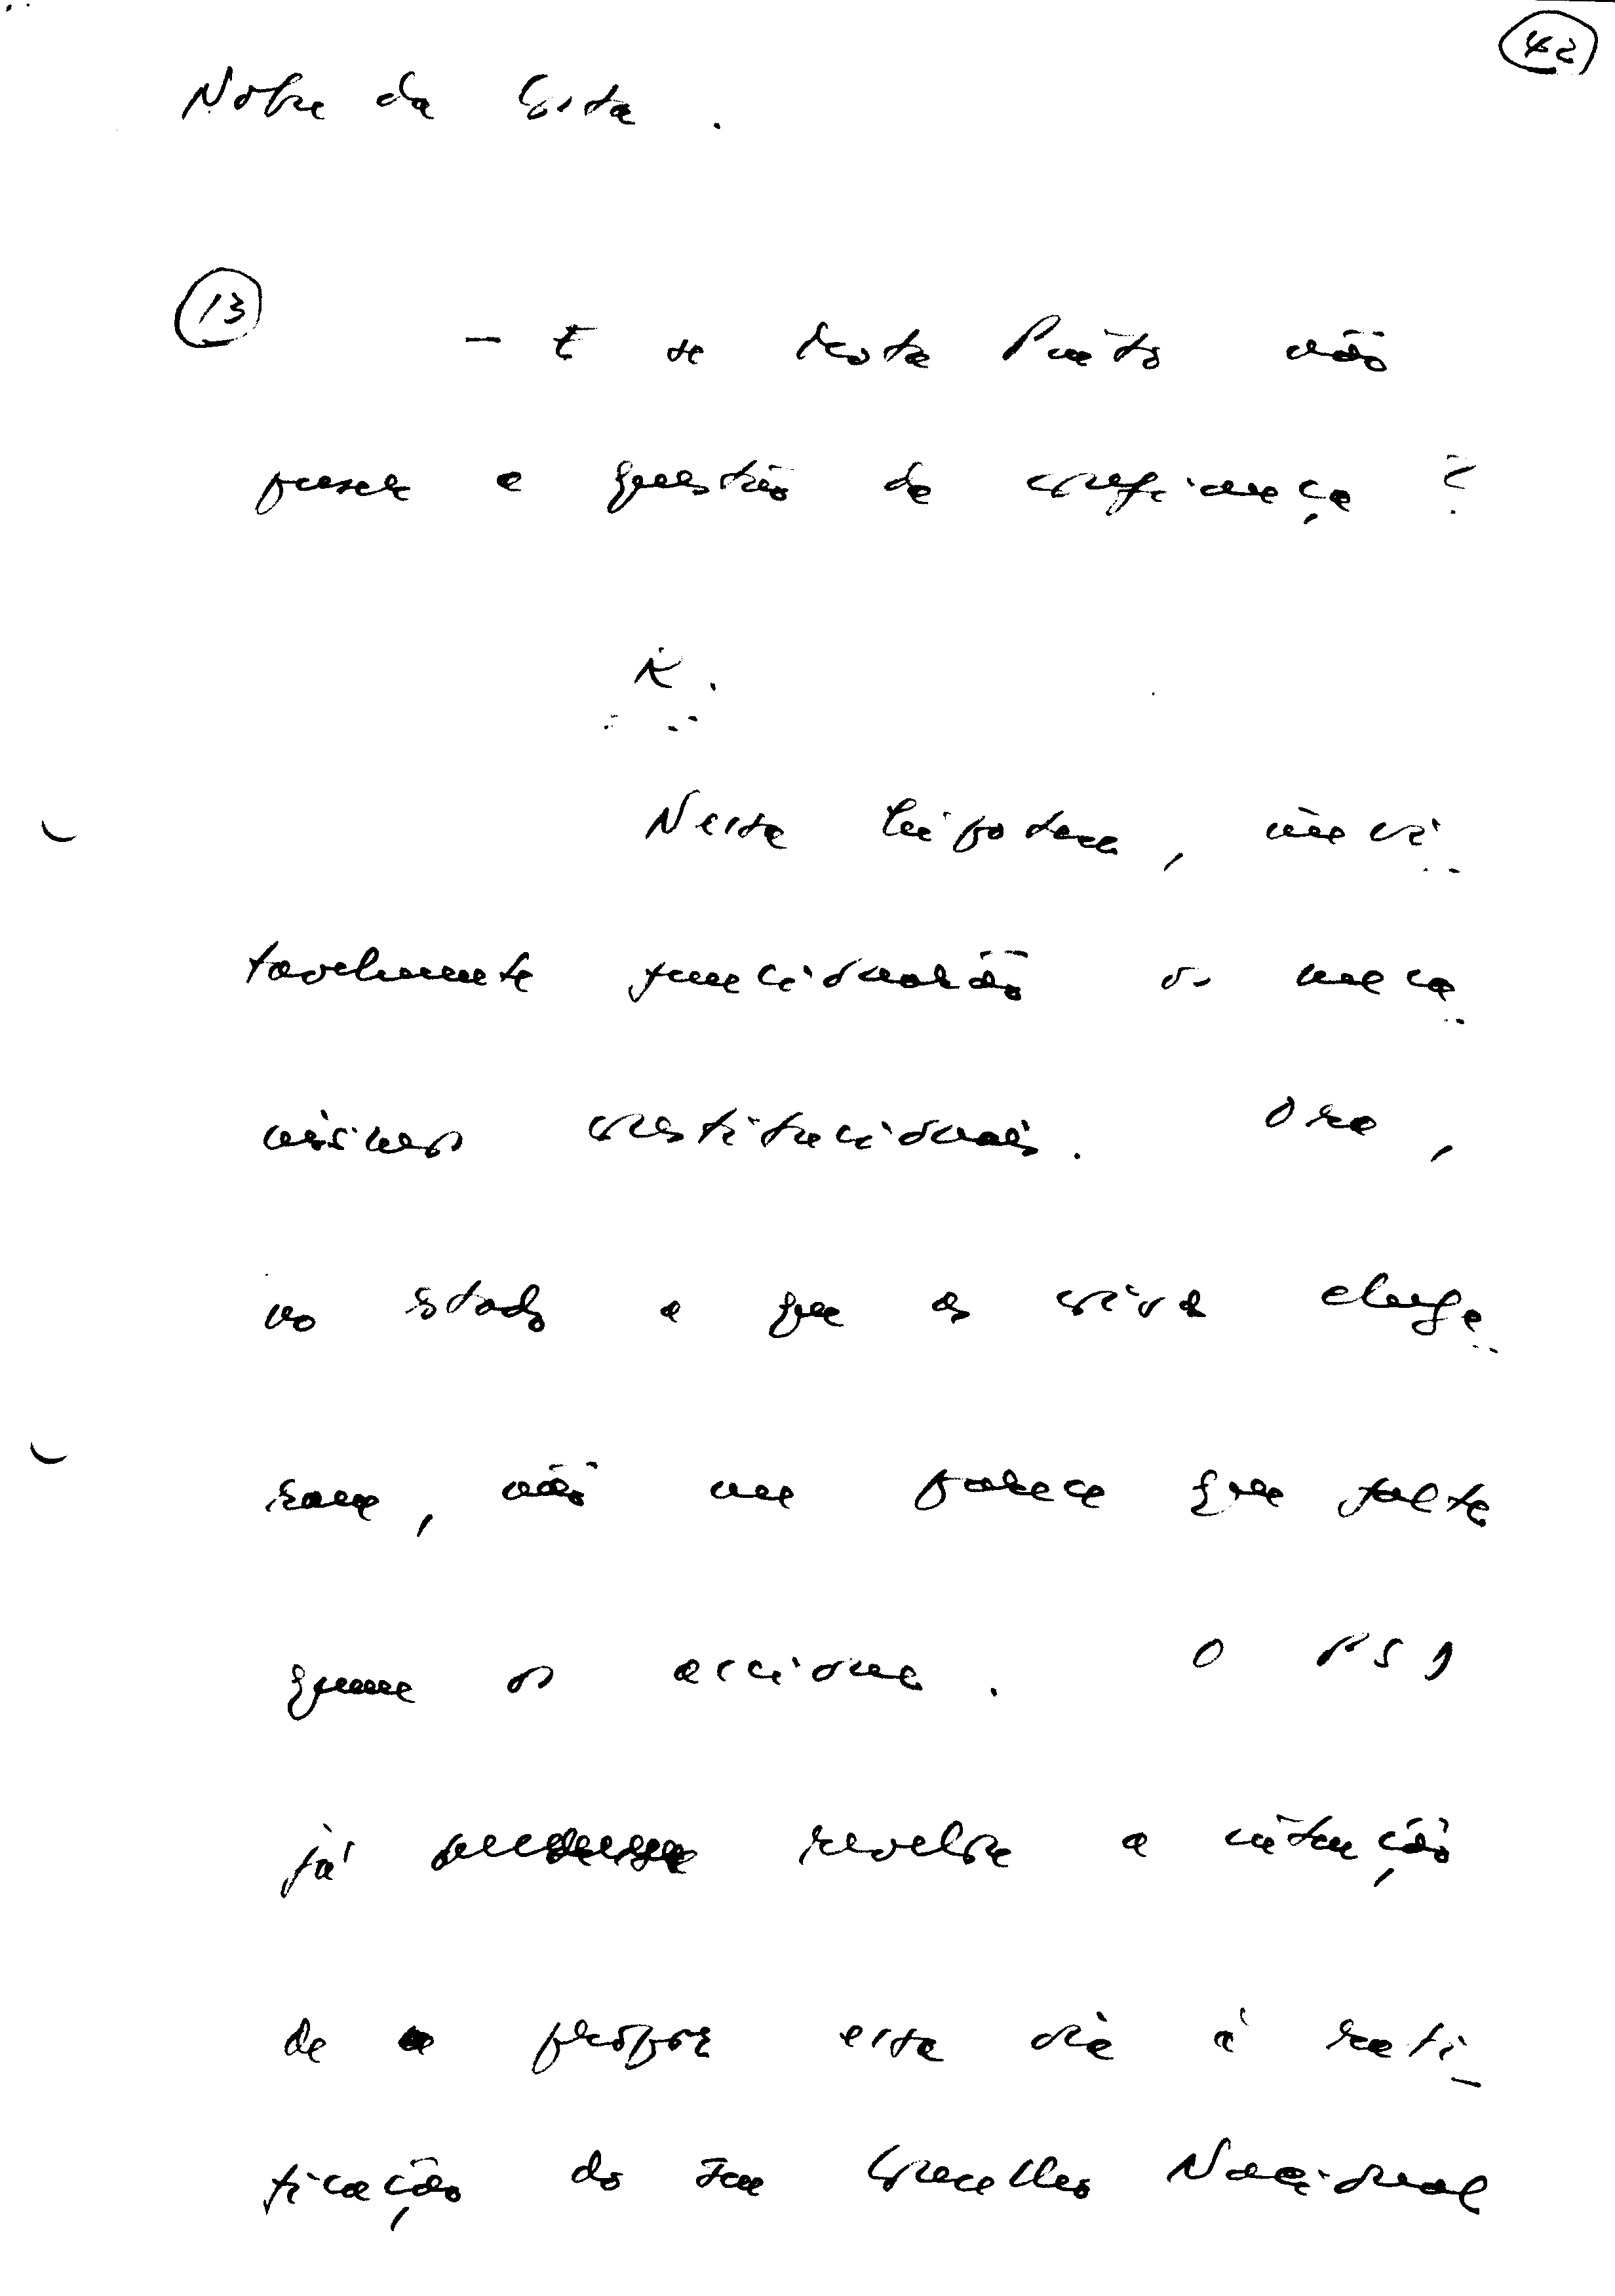 42
Nobre da Costa.
13
- E se Mota Pinto não
puser a questão de confiança?
R.
Nesta hipótese, inevi-
tavelmente funcionarão os meca-
nismos constitucionais. Ora,
no estado a que as coisas chega-
ram, não me parece que falte
quem os accione. O PSD
já revelou a intenção
de propor essa via à rati-
ficação do seu Conselho Nacional